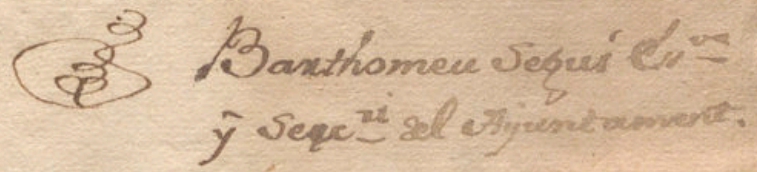 Barthomeu Seguí Es.ᵛᵃ
y Secr.ʳⁱ del Ajuntament.